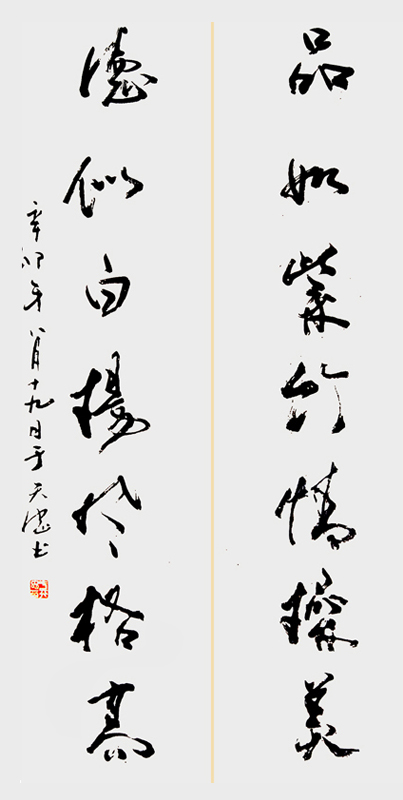 品如紫竹情操美
德似白楊风格高
辛卯年八月十九日于天津书